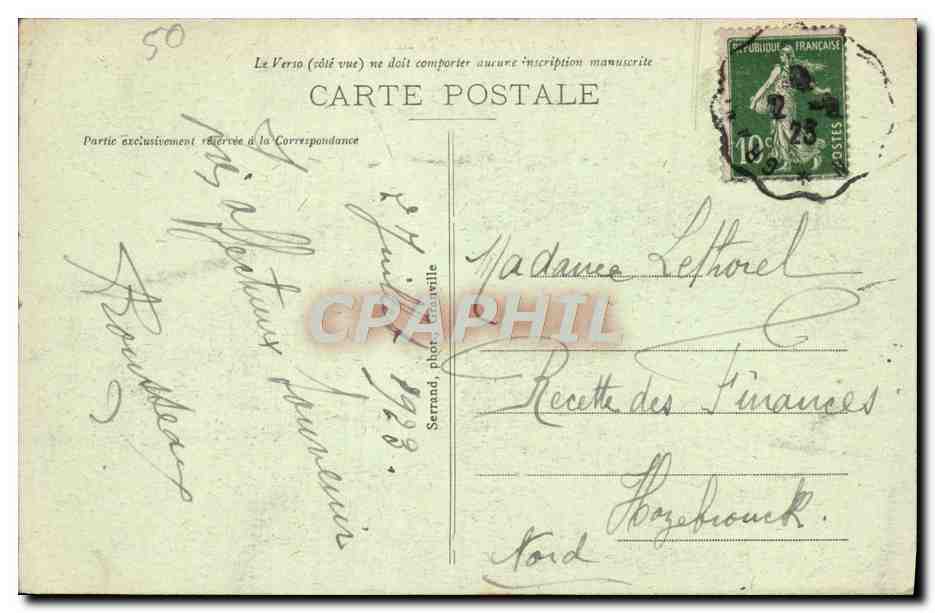 50
Le Verso (côté vue) ne doit comporter aucune inscription manuscrite
CARTE POSTALE
Partie exclusivement réservée à la Correspondance
REPUBLIQUE FRANÇAISE
10c
POSTES
2 -
23
2 Juillet 1923.
affectueux souvenir
Rousseaux
Serrand, phot., Granville
CPAPHIL
Madame Lethorel
Recette des Finances
Hazebrouck.
Nord